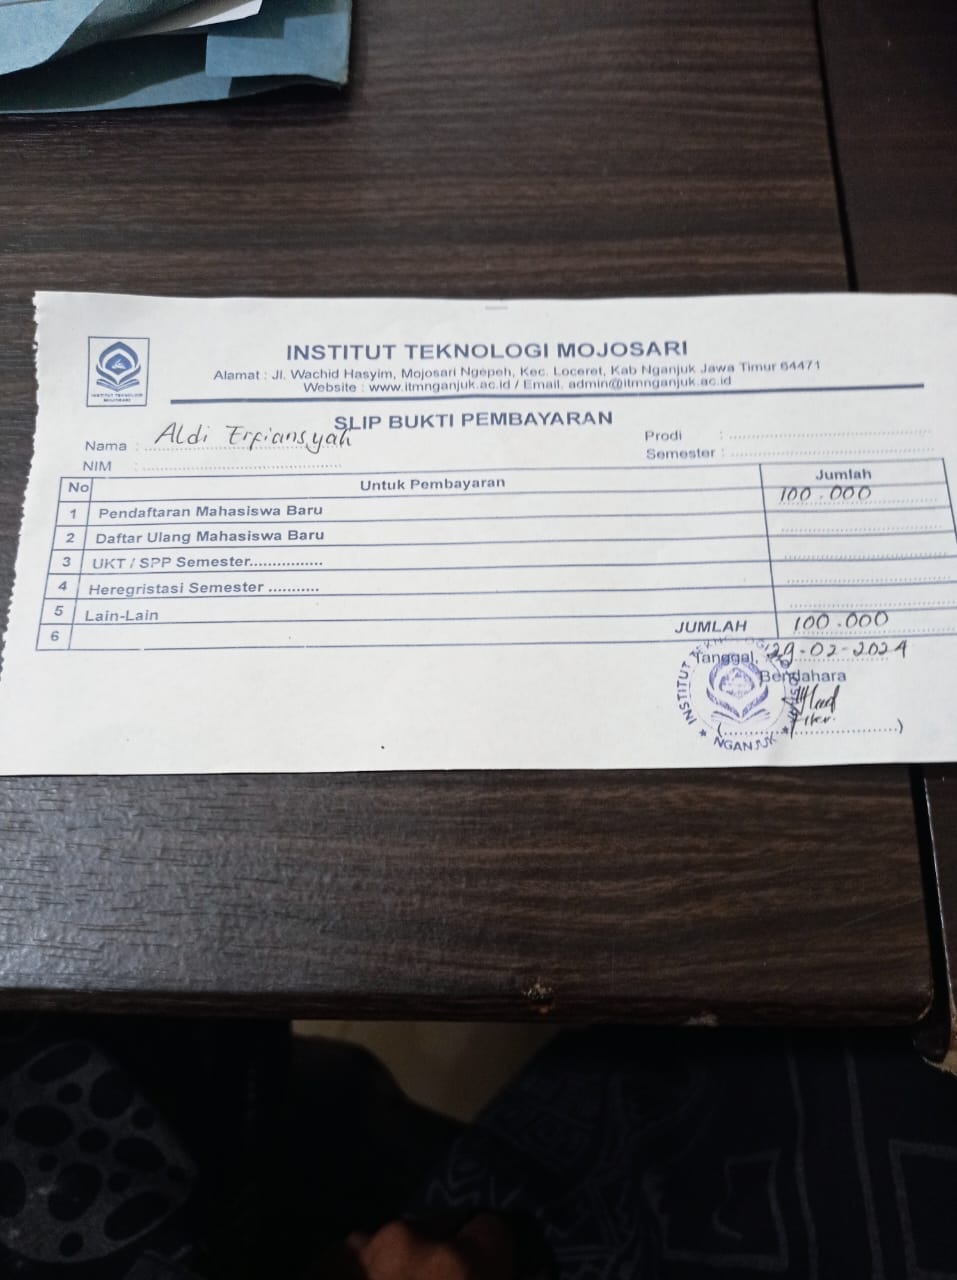 INSTITUT TEKNOLOGI MOJOSARI
INSTITUT TEKNOLOGI MOJOSARI
Alamat : Jl. Wachid Hasyim, Mojosari Ngepeh, Kec. Loceret, Kab Nganjuk Jawa Timur 64471
Website : www.itmnganjuk.ac.id / Email. admin@itmnganjuk.ac.id
SLIP BUKTI PEMBAYARAN
Nama : Aldi Erfiansyah
Prodi :
NIM :
Semester :
No Untuk Pembayaran Jumlah
1 Pendaftaran Mahasiswa Baru 100.000
2 Daftar Ulang Mahasiswa Baru
3 UKT / SPP Semester................
4 Heregristasi Semester ...........
5 Lain-Lain
6 JUMLAH 100.000
Tanggal, 29-02-2024
Bendahara
(..........................................)
INSTITUT TEKNOLOGI MOJOSARI
NGANJUK